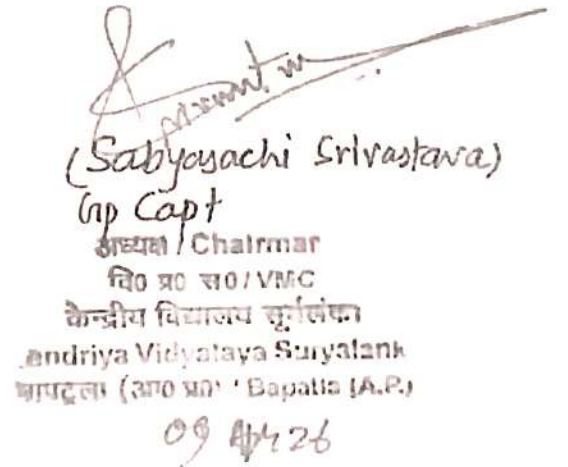 (Sabyasachi Srivastava)
Gp Capt
अध्यक्ष / Chairmar
वि० प्र० स० / VMC
केन्द्रीय विद्यालय सूर्यलंका
endriya Vidyalaya Suryalank
बापट्ला (आ० प्र०) / Bapatla (A.P.)
09 Apr 26